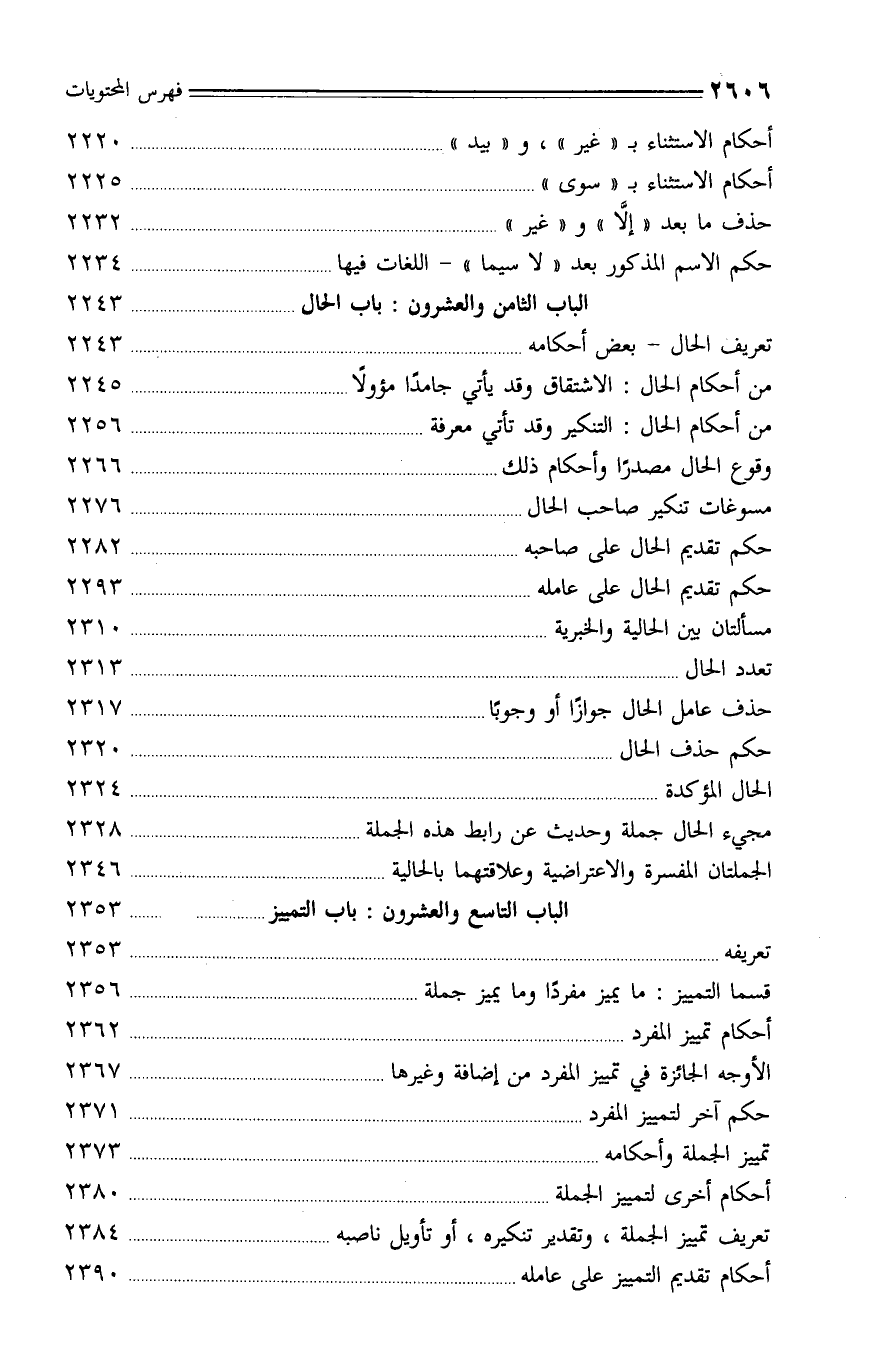 ٢٦٠٦ فهرس المحتويات
أحكام الاستثناء بـ « غير » ، و « بيد » ٢٢٢٠
أحكام الاستثناء بـ « سوى » ٢٢٢٥
حذف ما بعد « إلَّا » و « غير » ٢٢٣٢
حكم الاسم المذكور بعد « لا سيما » – اللغات فيها ٢٢٣٤
الباب الثامن والعشرون : باب الحال ٢٢٤٣
تعريف الحال – بعض أحكامه ٢٢٤٣
من أحكام الحال : الاشتقاق وقد يأتي جامدًا مؤولًا ٢٢٤٥
من أحكام الحال : التنكير وقد تأتي معرفة ٢٢٥٦
وقوع الحال مصدرًا وأحكام ذلك ٢٢٦٦
مسوغات تنكير صاحب الحال ٢٢٧٦
حكم تقديم الحال على صاحبه ٢٢٨٢
حكم تقديم الحال على عامله ٢٢٩٣
مسألتان بين الحالية والخبرية ٢٣١٠
تعدد الحال ٢٣١٣
حذف عامل الحال جوازًا أو وجوبًا ٢٣١٧
حكم حذف الحال ٢٣٢٠
الحال المؤكدة ٢٣٢٤
مجيء الحال جملة وحديث عن رابط هذه الجملة ٢٣٢٨
الجملتان المفسرة والاعتراضية وعلاقتهما بالحالية ٢٣٤٦
الباب التاسع والعشرون : باب التمييز ٢٣٥٣
تعريفه ٢٣٥٣
قسما التمييز : ما يميز مفردًا وما يميز جملة ٢٣٥٦
أحكام تمييز المفرد ٢٣٦٢
الأوجه الجائزة في تمييز المفرد من إضافة وغيرها ٢٣٦٧
حكم آخر لتمييز المفرد ٢٣٧١
تمييز الجملة وأحكامه ٢٣٧٣
أحكام أخرى لتمييز الجملة ٢٣٨٠
تعريف تمييز الجملة ، وتقدير تنكيره ، أو تأويل ناصبه ٢٣٨٤
أحكام تقديم التمييز على عامله ٢٣٩٠